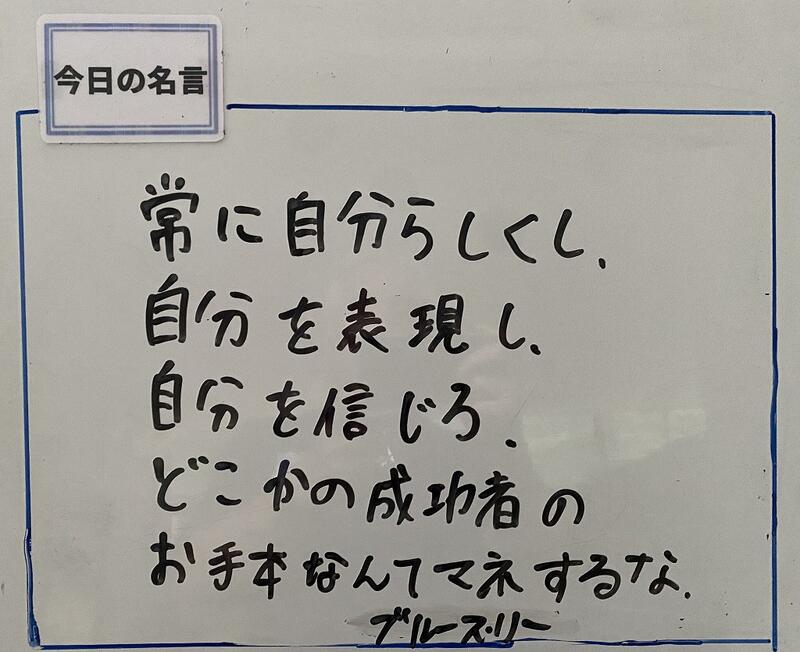 今日の名言
常に自分らしくし、
自分を表現し、
自分を信じろ、
どこかの成功者の
お手本なんてマネするな、
ブルース・リー